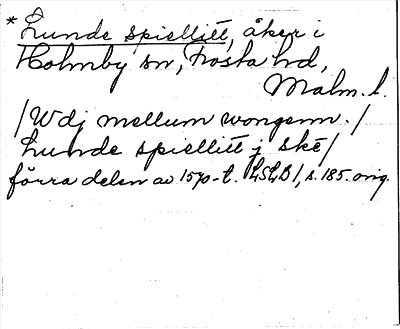 * Lunde spiellitt, åker i
Holmby sn, Frosta hd,
Malm. l.
/Wdj mellum wongenn./
Lunde spiellitt j skē/
förra delen av 1570-t. LSLB1, s. 185. orig.